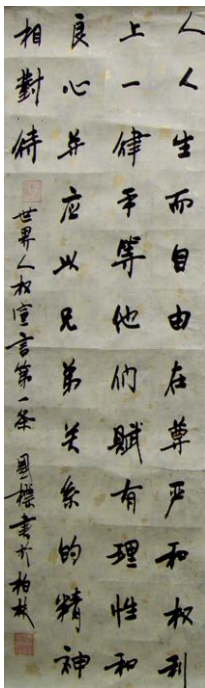 人人生而自由在尊严和权利
上一律平等他们赋有理性和
良心并应以兄弟关系的精神
相對待
世界人权宣言第一条 國標書於柏林